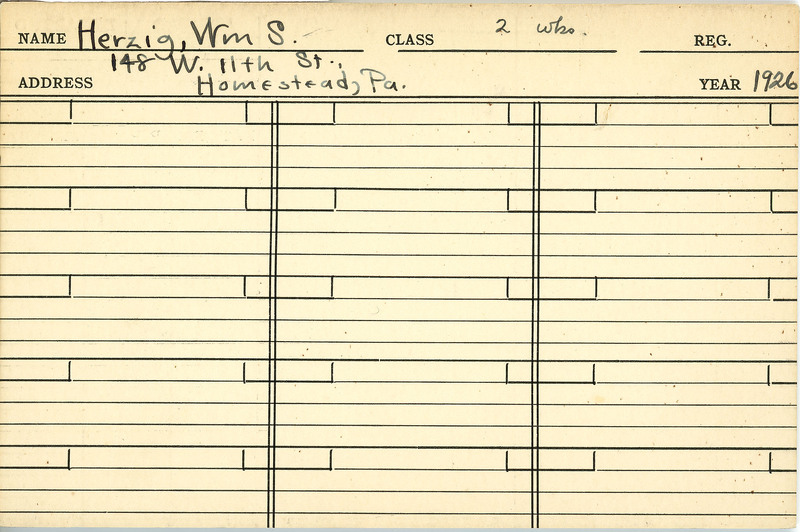 NAME Herzig, Wm S. CLASS 2 wks. REG.
148 W. 11th St.,
ADDRESS Homestead, Pa. YEAR 1926